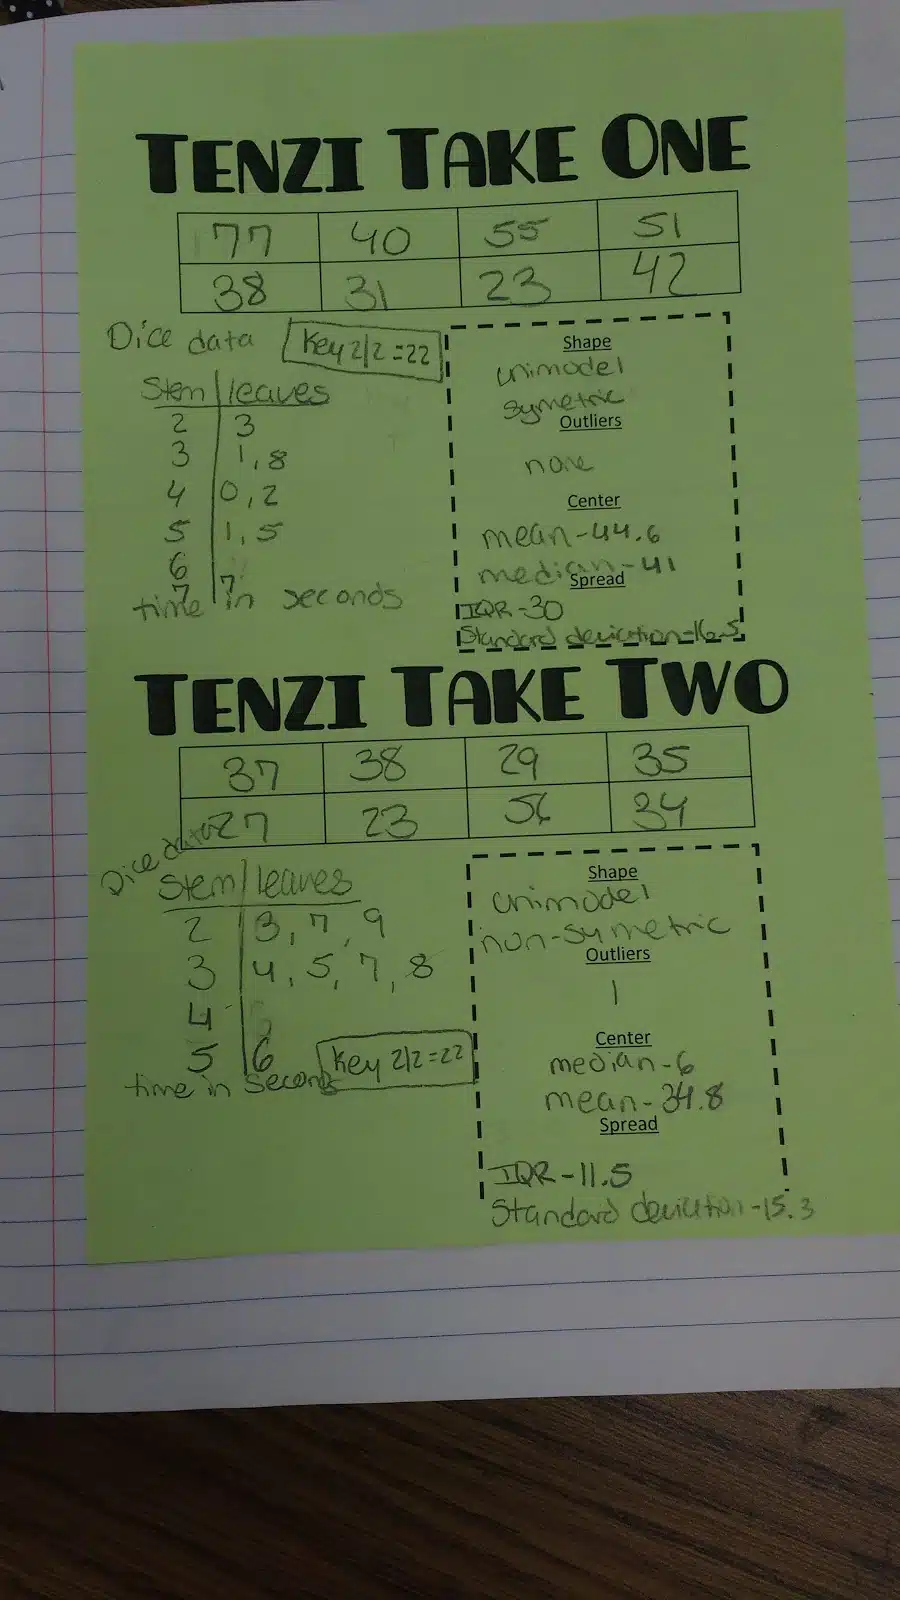 TENZI TAKE ONE
77 40 55 51
38 31 23 42
Dice data
Key 2|2=22
Stem | leaves
2 | 3
3 | 1, 8
4 | 0, 2
5 | 1, 5
6 |
7 | 7
time in seconds
Shape
unimodel
symetric
Outliers
none
Center
mean-44.6
median-41
Spread
IQR-30
Standard deviation-16.5
TENZI TAKE TWO
37 38 29 35
27 23 56 34
Dice data
Stem | leaves
2 | 3, 7, 9
3 | 4, 5, 7, 8
4 |
5 | 6
Key 2|2=22
time in Seconds
Shape
unimodel
non-symetric
Outliers
1
Center
median-6
mean-34.8
Spread
IQR-11.5
Standard deviation-15.3